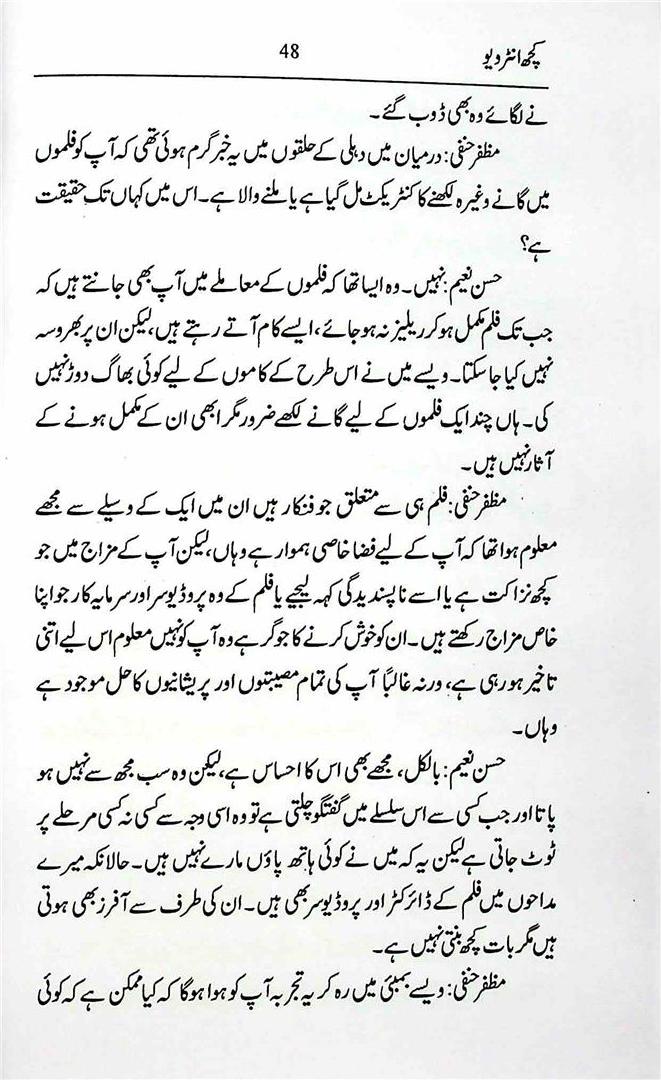 کچھ انٹرویو
48
نے لگائے وہ بھی ڈوب گئے۔
مظفر حنفی: درمیان میں دہلی کے حلقوں میں یہ خبر گرم ہوئی تھی کہ آپ کو فلموں
میں گانے وغیرہ لکھنے کا کنٹریکٹ مل گیا ہے یا ملنے والا ہے۔ اس میں کہاں تک حقیقت
ہے؟
حسن نعیم: نہیں۔ وہ ایسا تھا کہ فلموں کے معاملے میں آپ بھی جانتے ہیں کہ
جب تک فلم مکمل ہو کر ریلیز نہ ہو جائے، ایسے کام آتے رہتے ہیں، لیکن ان پر بھروسہ
نہیں کیا جا سکتا۔ ویسے میں نے اس طرح کے کاموں کے لیے کوئی بھاگ دوڑ نہیں
کی۔ ہاں چند ایک فلموں کے لیے گانے لکھے ضرور مگر ابھی ان کے مکمل ہونے کے
آثار نہیں ہیں۔
مظفر حنفی: فلم ہی سے متعلق جو فنکار ہیں ان میں ایک کے وسیلے سے مجھے
معلوم ہوا تھا کہ آپ کے لیے فضا خاصی ہموار ہے وہاں، لیکن آپ کے مزاج میں جو
کچھ نزاکت ہے یا اسے ناپسندیدگی کہہ لیجیے یا فلم کے وہ پروڈیوسر اور سرمایہ کار جو اپنا
خاص مزاج رکھتے ہیں۔ ان کو خوش کرنے کا جو گر ہے وہ آپ کو نہیں معلوم اس لیے اتنی
تاخیر ہو رہی ہے، ورنہ غالباً آپ کی تمام مصیبتوں اور پریشانیوں کا حل موجود ہے
وہاں۔
حسن نعیم: بالکل، مجھے بھی اس کا احساس ہے، لیکن وہ سب مجھ سے نہیں ہو
پاتا اور جب کسی سے اس سلسلے میں گفتگو چلتی ہے تو وہ اسی وجہ سے کسی نہ کسی مرحلے پر
ٹوٹ جاتی ہے لیکن یہ کہ میں نے کوئی ہاتھ پاؤں مارے نہیں ہیں۔ حالانکہ میرے
مداحوں میں فلم کے ڈائرکٹر اور پروڈیوسر بھی ہیں۔ ان کی طرف سے آفرز بھی ہوتی
ہیں مگر بات کچھ بنتی نہیں ہے۔
مظفر حنفی: ویسے بمبئی میں رہ کر یہ تجربہ آپ کو ہوا ہوگا کہ کیا ممکن ہے کہ کوئی